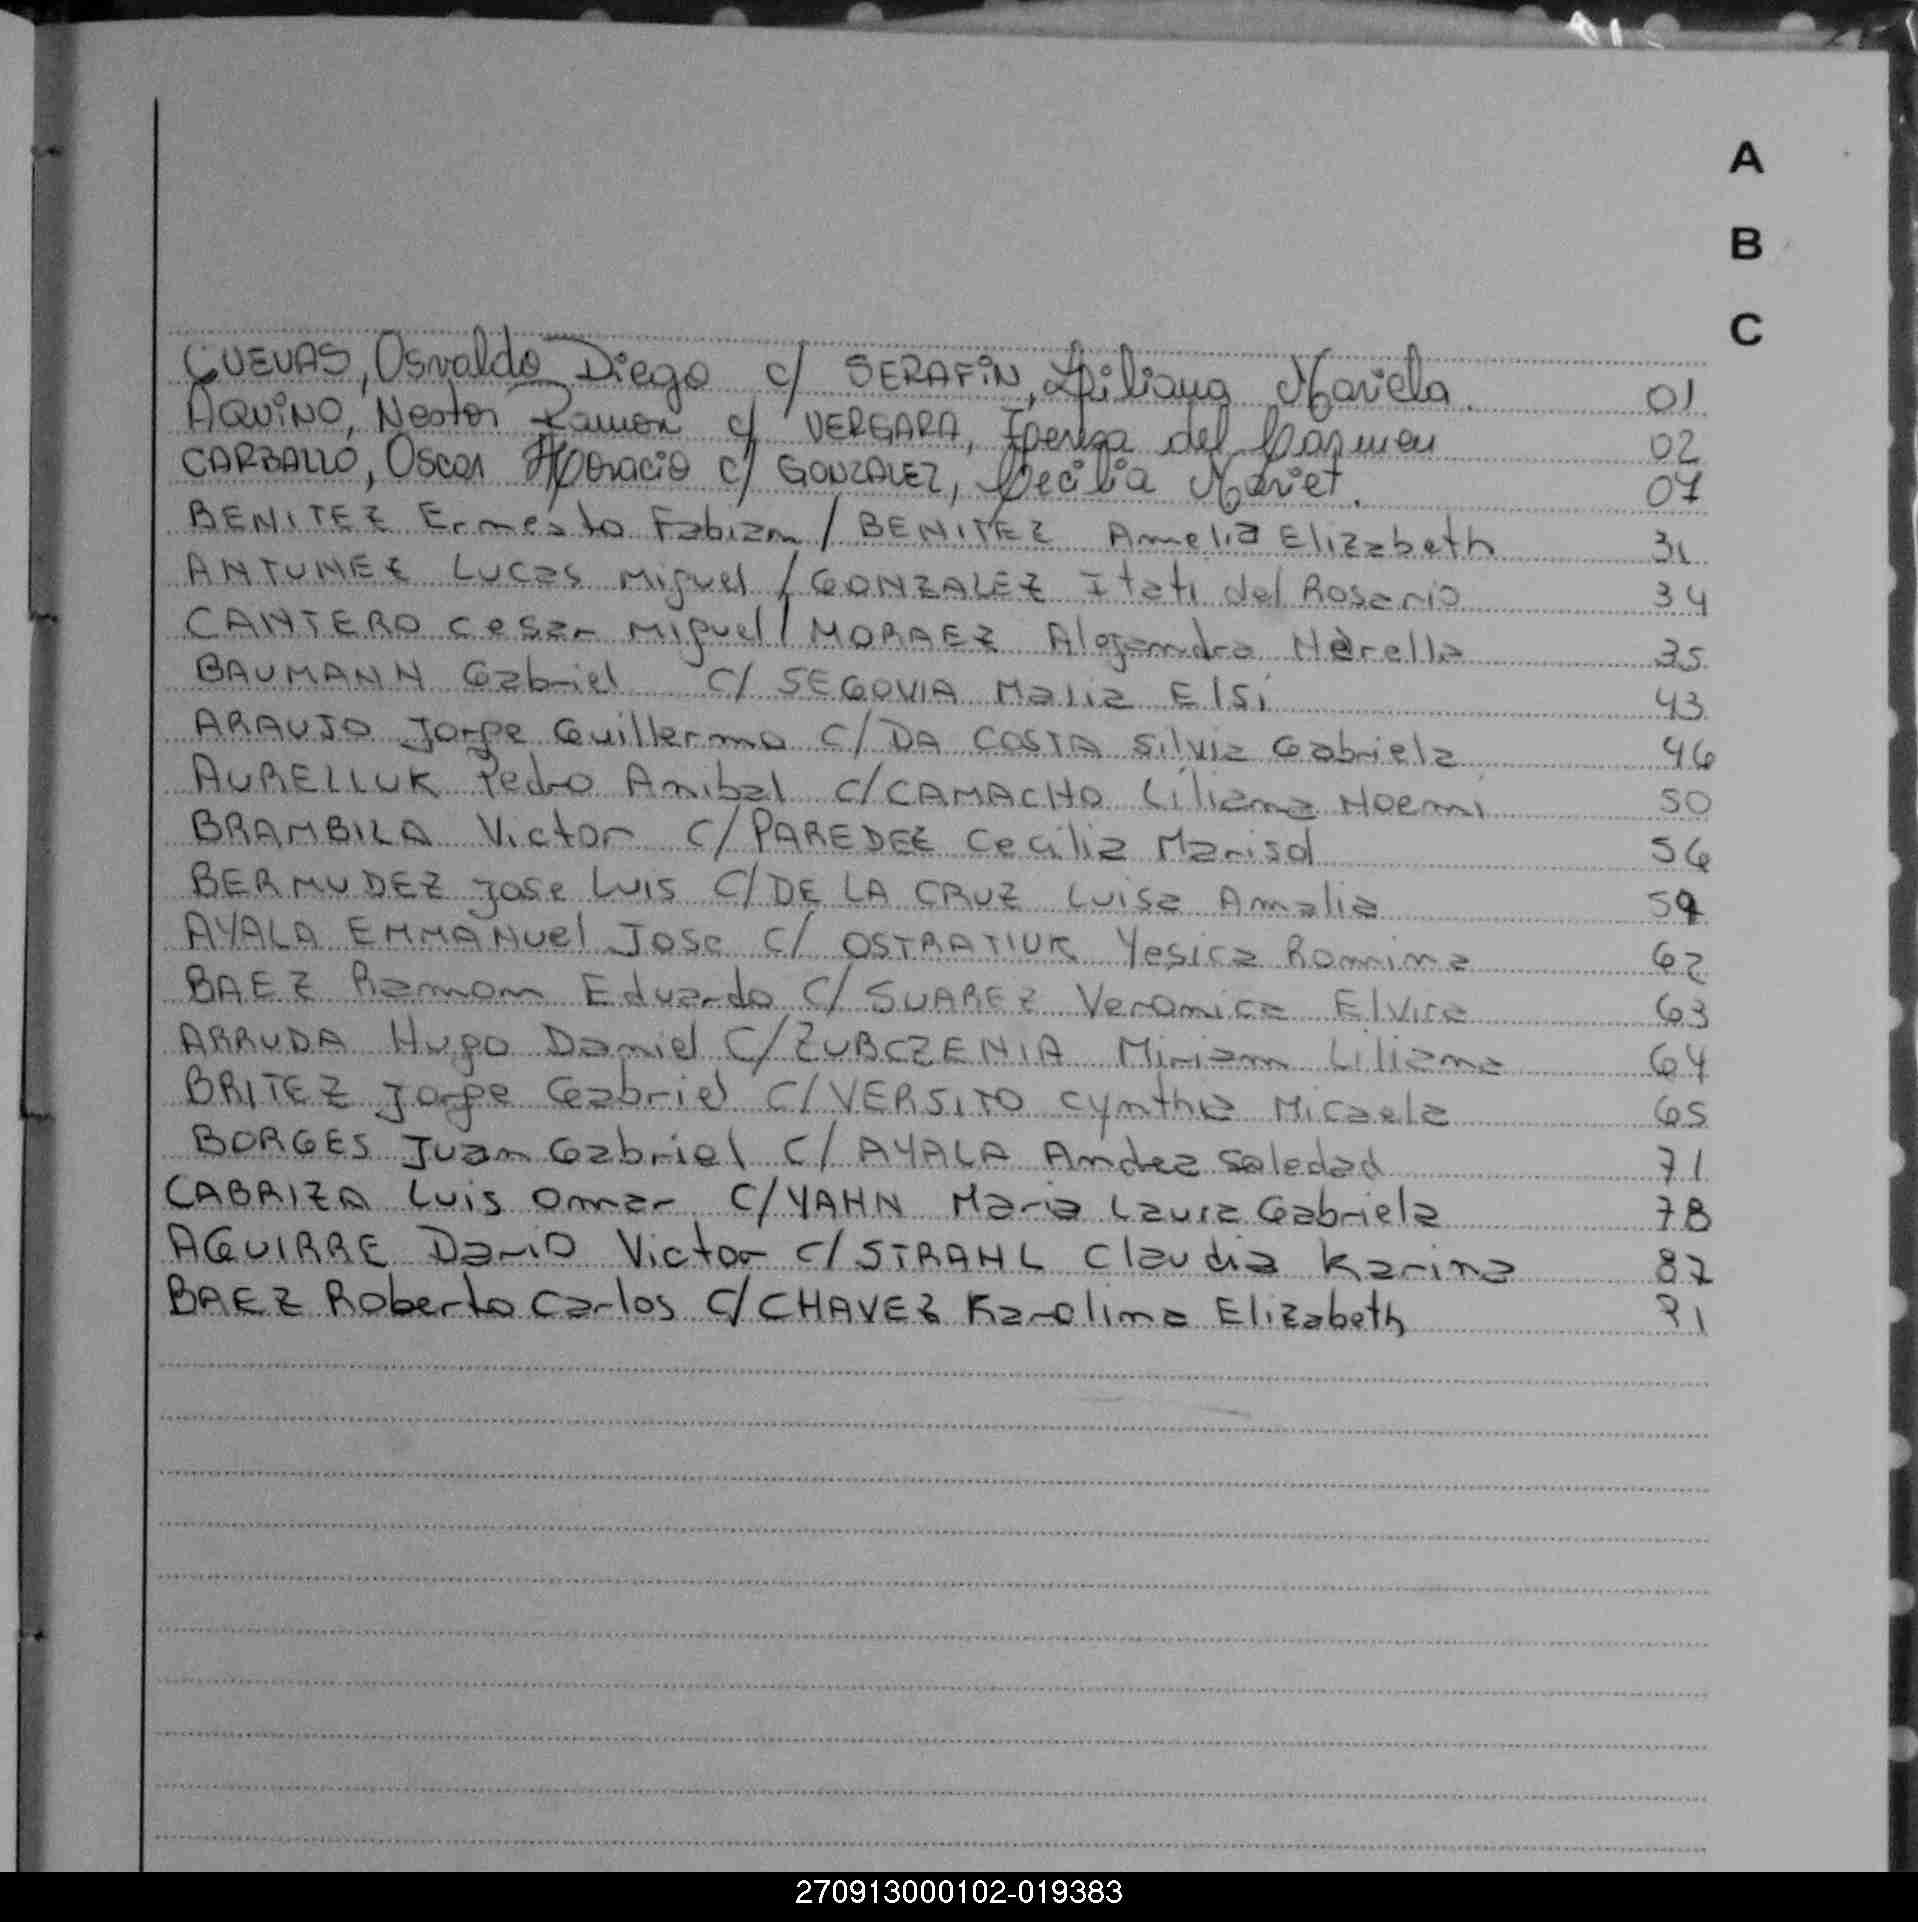 A
B
C
CUEVAS, Osvaldo Diego c/ SERAFIN, Liliana Mariela. 01
AQUINO, Nestor Ramon c/ VERGARA, del Carmen 02
CARBALLO, Oscar Horacio c/ GONZALEZ, Cecilia Mariet. 07
BENITEZ Ernesto Fabian / BENITEZ Amelia Elizabeth 31
ANTUNEZ Lucas Miguel / GONZALEZ Itati del Rosario 34
CANTERO Cesar Miguel / MORAEZ Alejandra Nerella 35
BAUMANN Gabriel C/ SEGOVIA Maria Elsi 43
ARAUJO Jorge Guillermo C/ DA COSTA Silvia Gabriela 46
AURELLUK Pedro Anibal C/ CAMACHO Liliana Noemi 50
BRAMBILA Victor C/ PAREDEZ Cecilia Marisol 56
BERMUDEZ Jose Luis C/ DE LA CRUZ Luisa Amalia 59
AYALA EMMANuel Jose C/ OSTRATIUK Yesica Romina 62
BAEZ Ramon Eduardo C/ SUAREZ Veronica Elvira 63
ARRUDA Hugo Daniel C/ ZUBCZENIA Miriam Liliana 64
BRITEZ Jorge Gabriel C/ VERSITO Cynthia Micaela 65
BORGES Juan Gabriel C/ AYALA Andrea Soledad 71
CABRIZA Luis Omar C/ YAHN Maria Laura Gabriela 78
AGUIRRE Dario Victor C/ STRAHL Claudia Karina 87
BAEZ Roberto Carlos C/ CHAVEZ Karolina Elizabeth 91
270913000102-019383